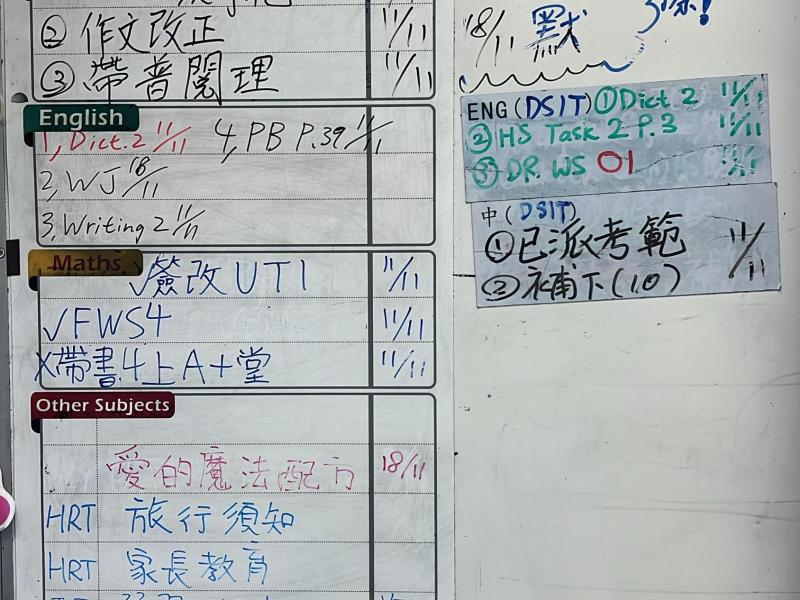 ② 作文改正 11/11
③ 帶普閱理 11/11
English
1, Dict. 2 11/11 4, PB P.39 11/11
2, WJ 18/11
3, Writing 2 11/11
Maths
✓簽改UT1 11/11
✓FWS4 11/11
X帶書4上A+堂 11/11
Other Subjects
愛的魔法配方 18/11
HRT 旅行須知
HRT 家長教育
18/11 默
ENG (DSIT) ①Dict. 2 11/11
②HS Task 2 P.3 11/11
③DR. WS 01 11/11
中(DSIT)
①已派考範 11/11
②補下(10)